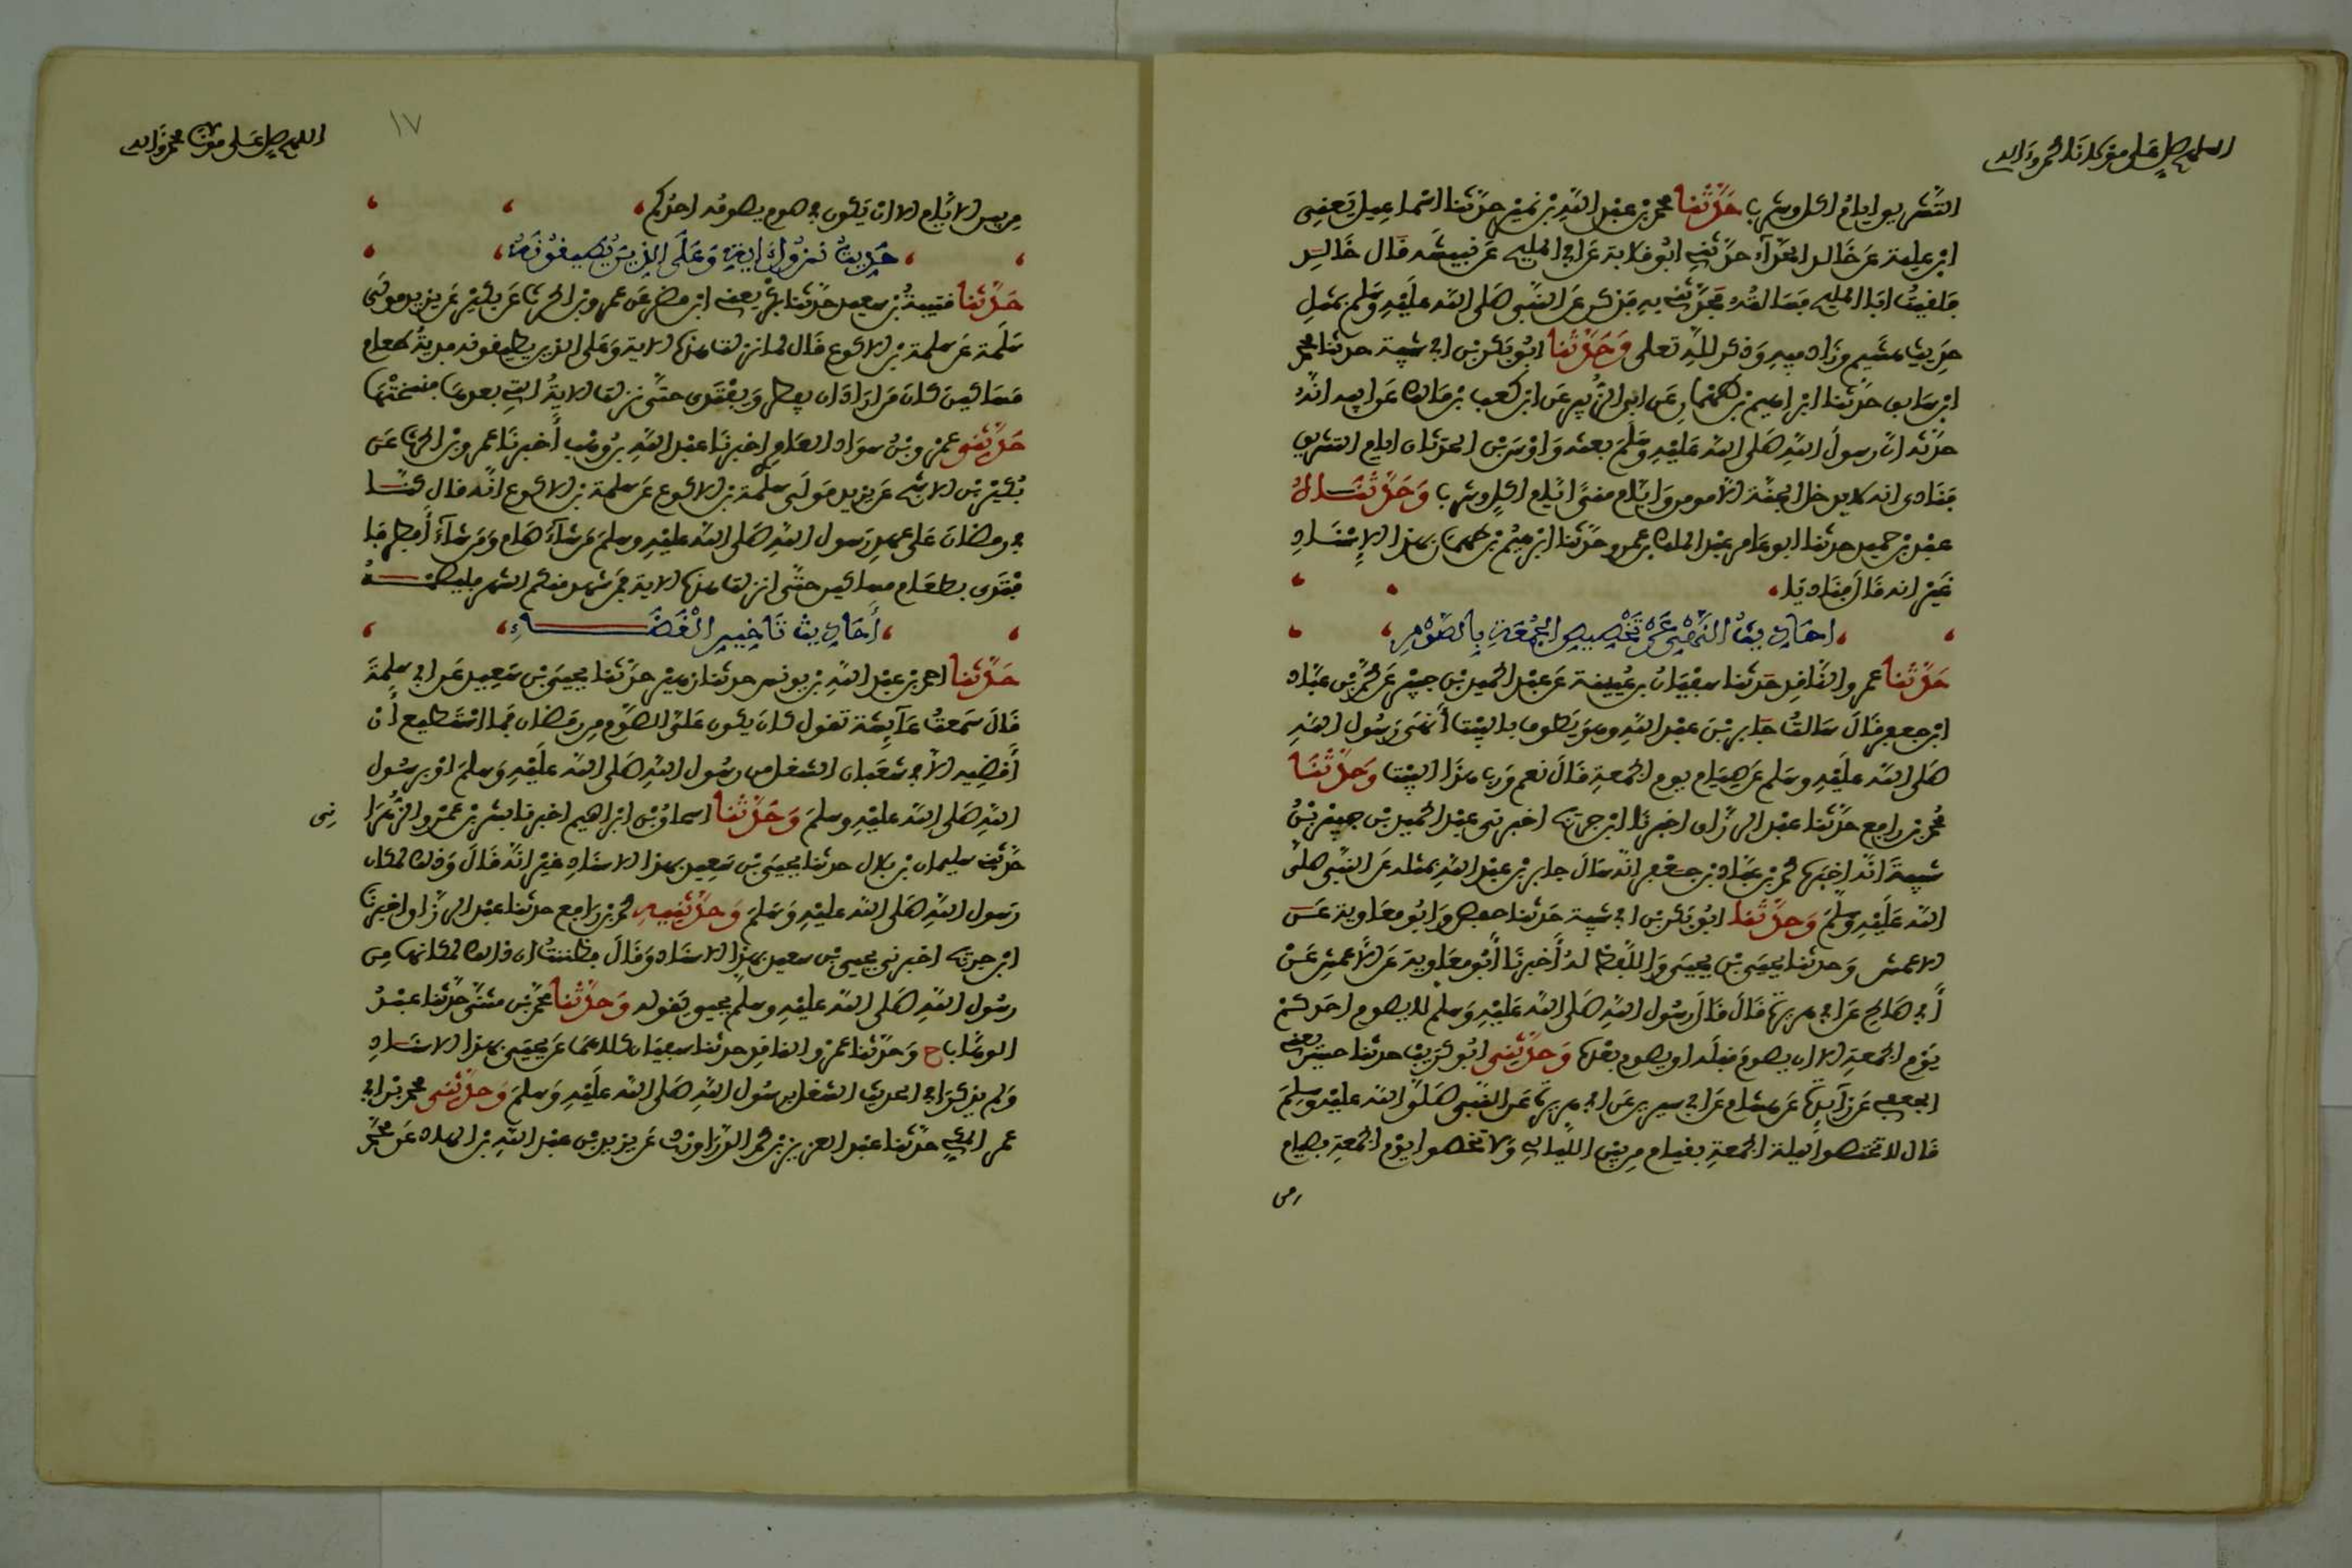 اللهم صل على مولانا محمد وءاله
التشريق ايام اكل وشرب حدثنا محمد بن عبد الله بن نمير حدثنا اسماعيل يعني
ابن علية عن خالد الحذاء حدثني ابو قلابة عن ابي المليح عن نبيشة قال خالد
فلقيت ابا المليح فسالته فحدثني به فذكر عن النبي صلى الله عليه وسلم بمثل
حديث هشيم وزاد فيه وذكر لله تعلى وحدثنا ابو بكر بن ابي شيبة حدثنا محمد
ابن سابق حدثنا ابراهيم بن طهمان عن ابي الزبير عن ابن كعب بن مالك عن ابيه انه
حدثه ان رسول الله صلى الله عليه وسلم بعثه واوس بن الحدثان ايام التشريق
فنادى انه لا يدخل الجنة الا مومن وايام منى ايام اكل وشرب وحدثناه
عبد بن حميد حدثنا ابو عامر عبد الملك بن عمرو حدثنا ابراهيم بن طهمان بهذا الاسناد
غير انه قال فناديا
احاديث النهي عن تخصيص الجمعة بالصوم
حدثنا عمرو الناقد حدثنا سفيان بن عيينة عن عبد الحميد بن جبير عن محمد بن عباد
ابن جعفر قال سالت جابر بن عبد الله وهو يطوف بالبيت أنهى رسول الله
صلى الله عليه وسلم عن صيام يوم الجمعة قال نعم ورب هذا البيت وحدثنا
محمد بن رافع حدثنا عبد الرزاق اخبرنا ابن جريج اخبرني عبد الحميد بن جبير بن
شيبة انه اخبره محمد بن عباد بن جعفر انه سال جابر بن عبد الله بمثله عن النبي صلى
الله عليه وسلم وحدثنا ابو بكر بن ابي شيبة حدثنا حفص وابو معاوية عن
الاعمش وحدثنا يحيى بن يحيى واللفظ له أخبرنا أبو معاوية عن الأعمش عن
أبي صالح عن ابي هريرة قال قال رسول الله صلى الله عليه وسلم لا يصوم احدكم
يوم الجمعة الا ان يصوم قبله او يصوم بعده وحدثني ابو كريب حدثنا حسين يعني
الجعفي عن زائدة عن هشام عن ابن سيرين عن ابي هريرة عن النبي صلى الله عليه وسلم
قال لا تختصوا ليلة الجمعة بقيام من بين الليالي ولا تخصوا يوم الجمعة بصيام
من
اللهم صل على مولانا محمد وءاله
١٧
من بين الايام الا ان يكون في صوم يصومه احدكم
حديث نزول اية وعلى الذين يطيقونه
حدثنا قتيبة بن سعيد حدثنا بكر يعني ابن مضر عن عمرو بن الحرث عن بكير عن يزيد مولى
سلمة عن سلمة بن الاكوع قال لما نزلت هذه الاية وعلى الذين يطيقونه فدية طعام
مساكين كان من اراد ان يفطر ويفتدى حتى نزلت الاية التي بعدها فنسختها
حدثني عمرو بن سواد العامري اخبرنا عبد الله بن وهب أخبرنا عمرو بن الحرث عن
بكير بن الاشج عن يزيد مولى سلمة بن الاكوع عن سلمة بن الاكوع انه قال كنا
في رمضان على عهد رسول الله صلى الله عليه وسلم من شاء صام ومن شاء أفطر فا
فتدى بطعام مساكين حتى انزلت هذه الاية فمن شهد منكم الشهر فليصمه
أحاديث تاخير القضاء
حدثنا احمد بن عبد الله بن يونس حدثنا زهير حدثنا يحيى بن سعيد عن ابي سلمة
قال سمعت عائشة تقول كان يكون على الصوم من رمضان فما استطيع أن
أقضيه الا في شعبان الشغل من رسول الله صلى الله عليه وسلم او برسول
الله صلى الله عليه وسلم وحدثنا اسحاق بن ابراهيم اخبرنا بشر بن عمرو الزهرا
ني
حدثني سليمان بن بلال حدثنا يحيى بن سعيد بهذا الاسناد غير انه قال وذلك لمكان
رسول الله صلى الله عليه وسلم وحدثنيه محمد بن رافع حدثنا عبد الرزاق اخبرنا
ابن جريج اخبرني يحيى بن سعيد بهذا الاسناد وقال فظننت ان ذلك لمكانها من
رسول الله صلى الله عليه وسلم يحيى يقوله وحدثنا محمد بن مثنى حدثنا عبد
الوهاب ح وحدثنا عمرو الناقد حدثنا سفيان كلاهما عن يحيى بهذا الاسناد
ولم يذكرا في الحديث الشغل برسول الله صلى الله عليه وسلم وحدثني محمد بن ابي
عمر المكي حدثنا عبد العزيز بن محمد الدراوردي عن يزيد بن عبد الله بن الهاد عن محمد